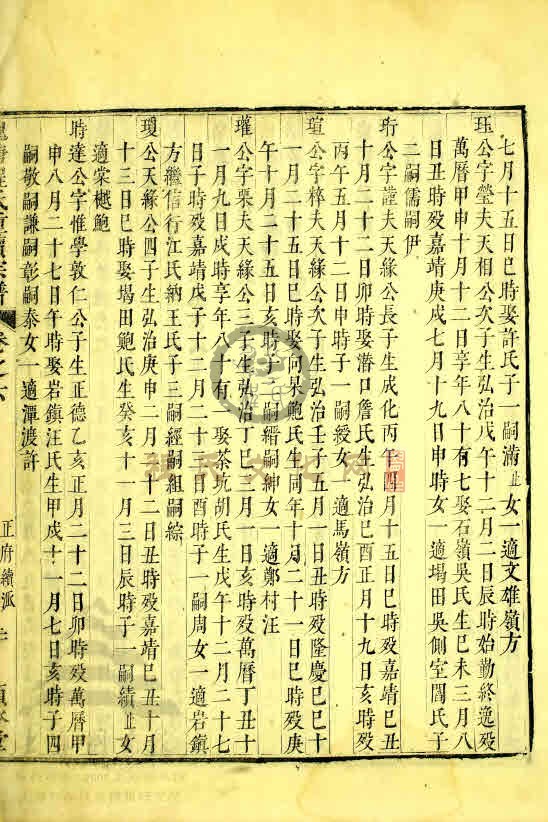 七月十五日巳時娶許氏子一嗣滿止女一適文雄嶺方
珏公字瑩夫天相公次子生弘治戊午十二月二日辰時始勤終逸殁
萬曆甲申十月十二日享年八十有七娶石嶺吳氏生己未三月八
日丑時殁嘉靖庚戌七月十九日申時女一適塌田吳側室閻氏子
二嗣儒嗣伊
珩公字謹夫天緣公長子生成化丙午四月十五日巳時殁嘉靖己丑
十月二十二日卯時娶潛口詹氏生弘治己酉正月十九日亥時殁
丙午五月十二日申時子一嗣綬女一適馬嶺方
瑄公字粹夫天緣公次子生弘治壬子五月一日丑時殁隆慶己巳十
一月二十五日巳時娶向杲鮑氏生同年十月二十一日亥時殁庚
午十月二十五日亥時子二嗣縉嗣紳女一適鄭村汪
瓘公字栗夫天緣公三子生弘治丁巳三月一日亥時殁萬曆丁丑十
一月九日戌時享年八十有一娶茶坑胡氏生戊午十二月二十七
日子時殁嘉靖戊子十二月二十三日酉時子一嗣周女一適岩鎮
方繼信行江氏納王氏子三嗣經嗣組嗣綜
瓊公天緣公四子生弘治庚申二月二十二日丑時殁嘉靖己丑十月
十三日巳時娶塌田鮑氏生癸亥十一月三日辰時子一嗣績止女一
適棠樾鮑
時達公字惟學敦仁公子生正德乙亥正月二十二日卯時殁萬曆甲
申八月二十七日午時娶岩鎮汪氏生甲戌十一月七日亥時子四
嗣敬嗣謙嗣彰嗣泰女一適潭渡許
氏重續宗譜 卷之六 正府續派